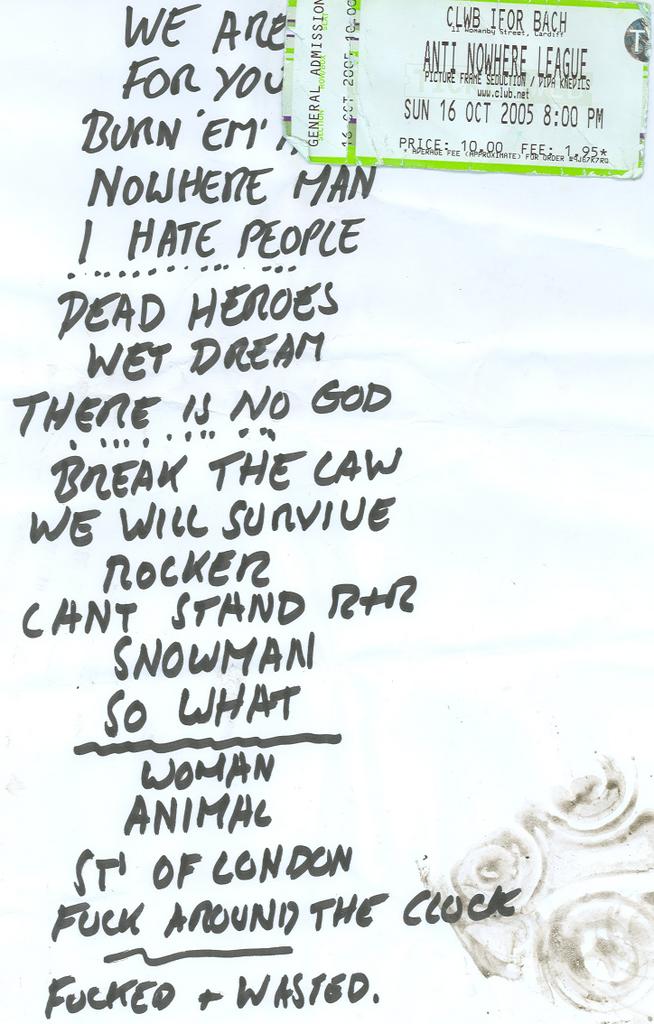 WE ARE
FOR YOU
BURN 'EM'
NOWHERE MAN
I HATE PEOPLE
DEAD HEROES
WET DREAM
THERE IS NO GOD
BREAK THE LAW
WE WILL SURVIVE
ROCKER
CANT STAND R+R
SNOWMAN
SO WHAT
WOMAN
ANIMAL
ST' OF LONDON
FUCK AROUND THE CLOCK
FUCKED + WASTED.
GENERAL ADMISSION
16 OCT 2005 10.00
CLWB IFOR BACH
11 Womanby Street, Cardiff
ANTI NOWHERE LEAGUE
PICTURE FRAME SEDUCTION / DIVA KNEVILS
www.club.net
SUN 16 OCT 2005 8:00 PM
PRICE: 10.00 FEE: 1.95*
* AVERAGE FEE (APPROXIMATE) FOR ORDER
T